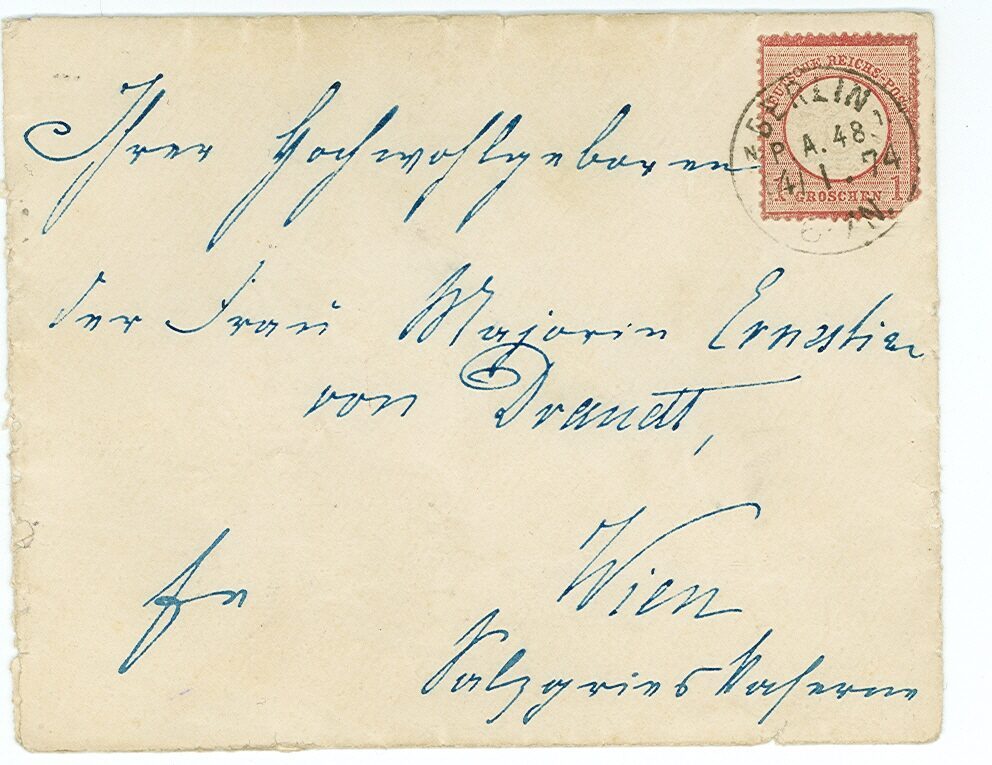 Ihrer Hochwohlgeboren
der Frau Majorin Ernestine
von Brandt,
Wien
Salzgries Kaserne
fr
DEUTSCHE REICHS-POST
1 GROSCHEN 1
BERLIN
N P. A. 48
4/1.74
6-7N.